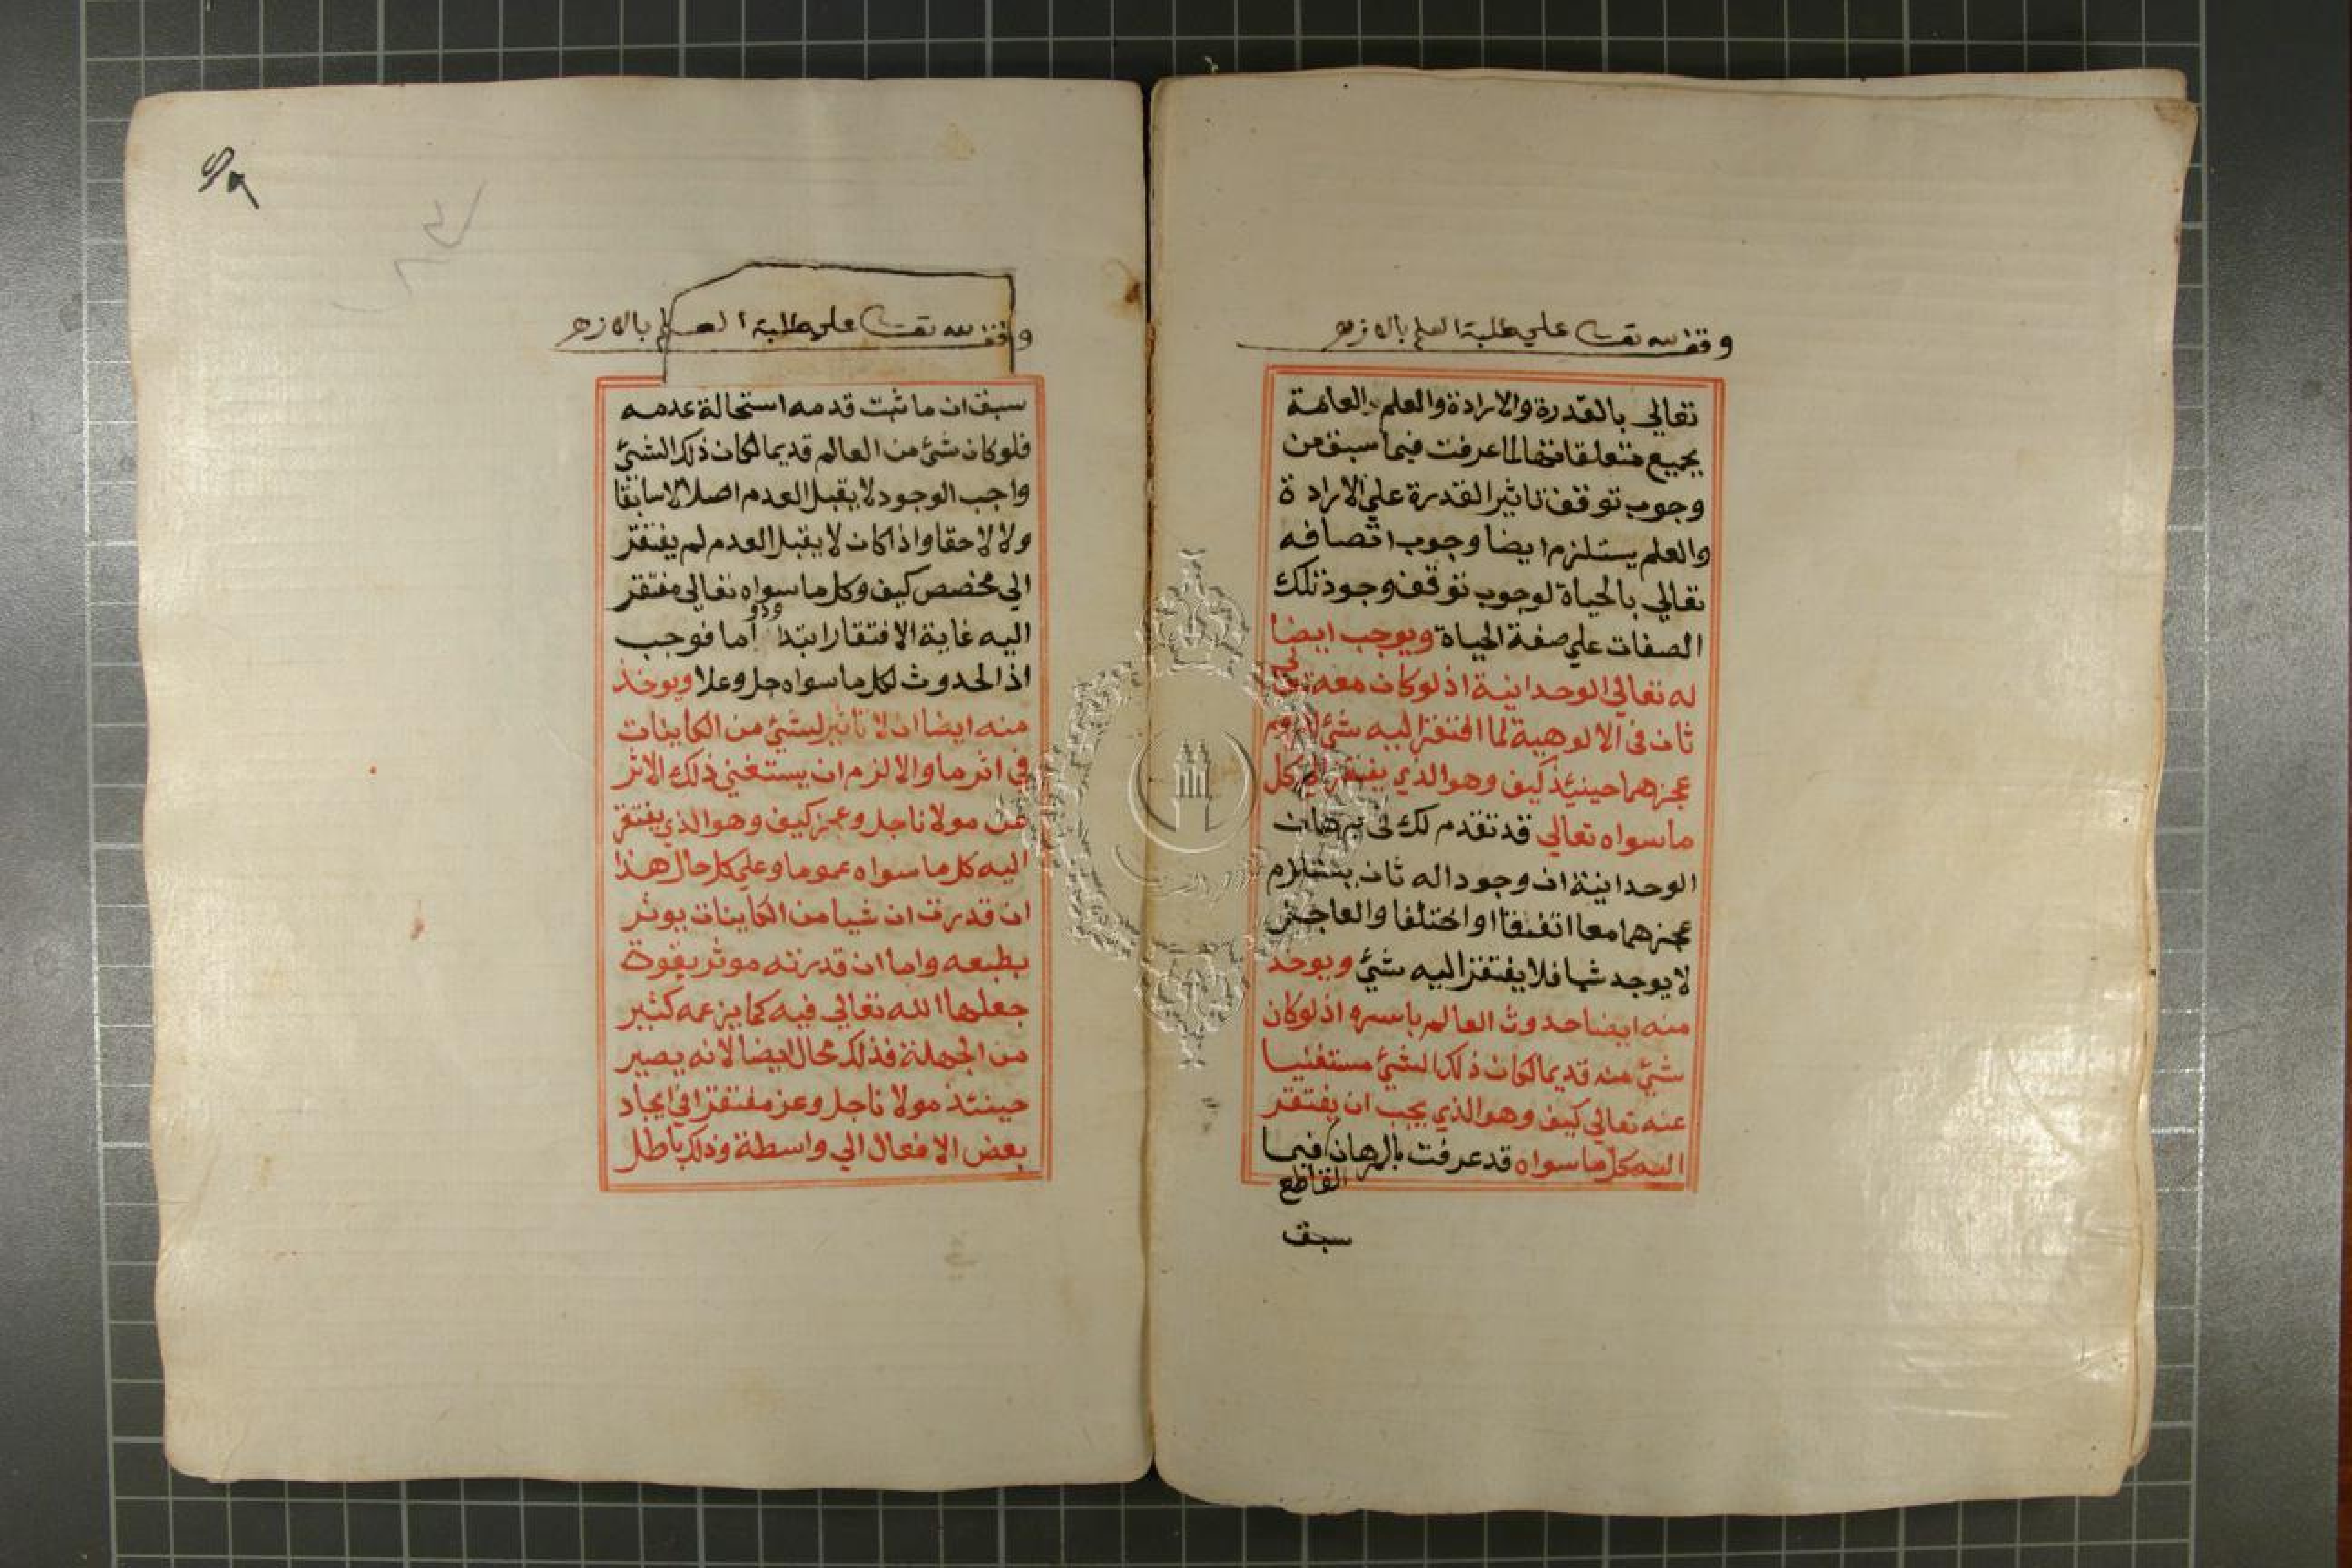 وقف لله تعالى على طلبة العلم بالازهر
تعالي بالقدرة والارادة والعلم العامة
بجميع متعلقاتها لما عرفت فيما سبق من
وجوب توقف تاثير القدرة علي الارادة
والعلم يستلزم ايضا وجوب اتصافه
تعالي بالحياة لوجوب توقف وجود تلك
الصفات علي صفة الحياة ويوجب ايضا
له تعالي الوحدانية اذ لو كان معه
ثان في الالوهية لما افتقر اليه شئ للزوم
عجزهما حينيئذ كيف وهو الذي يفتقر اليه كل
ما سواه تعالي قد تقدم لك في برهان
الوحدانية ان وجود اله ثان يستلزم
عجزهما معا اتفقا او اختلفا والعاجز
لا يوجد شيا فلا يفتقر اليه شئ ويوخذ
منه ايضا حدوث العالم باسره اذ لو كان
شئ منه قديما لكان ذلك الشئ مستغنيا
عنه تعالي كيف وهو الذي يجب ان يفتقر
اليه كل ما سواه قد عرفت بالبرهان فيما
القاطع
سبق
وقف لله تعالى على طلبة العلم بالازهر
سبق ان ما ثبت قدمه استحالة عدمه
فلو كان شئ من العالم قديما لكان ذلك الشئ
واجب الوجود لا يقبل العدم اصلا لا سابقا
ولا لاحقا واذا كان لا يقبل العدم لم يفتقر
الي مخصص كيف وكل ما سواه تعالي مفتقر
اليه غاية الافتقار ابتدا ودواما فوجب
اذ الحدوث لكل ما سواه جل وعلا ويوخذ
منه ايضا ان لا تاثير لشئ من الكاينات
في اثر ما والا لزم ان يستغني ذلك الاثر
عن مولانا جل وعز كيف وهو الذي يفتقر
اليه كل ما سواه عموما وعلي كل حال هذا
ان قدرت ان شيا من الكاينات يوثر
بطبعه واما ان قدرته موثر بقوة
جعلها الله تعالي فيه كما يزعمه كثير
من الجهلة فذلك محال ايضا لانه يصير
حينئذ مولانا جل وعز مفتقرا في ايجاد
بعض الافعال الي واسطة وذلك باطل